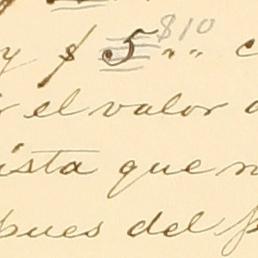 y $ 5 " " $10 c
el valor
ista que
pues del